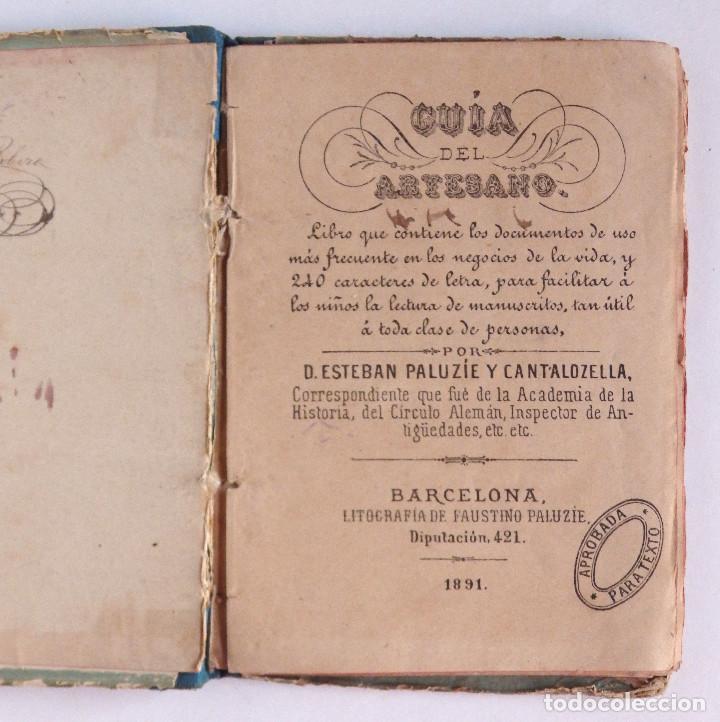 GUÍA
DEL
ARTESANO.
Libro que contiene los documentos de uso
más frecuente en los negocios de la vida, y
240 caracteres de letra, para facilitar á
los niños la lectura de manuscritos, tan útil
á toda clase de personas,
POR
D. ESTEBAN PALUZÍE Y CANTALOZELLA,
Correspondiente que fué de la Academia de la
Historia, del Círculo Alemán, Inspector de An-
tigüedades, etc. etc.
BARCELONA,
LITOGRAFÍA DE FAUSTINO PALUZÍE.
Diputación, 421.
1891.
APROBADA
PARA TEXTO
todocoleccion